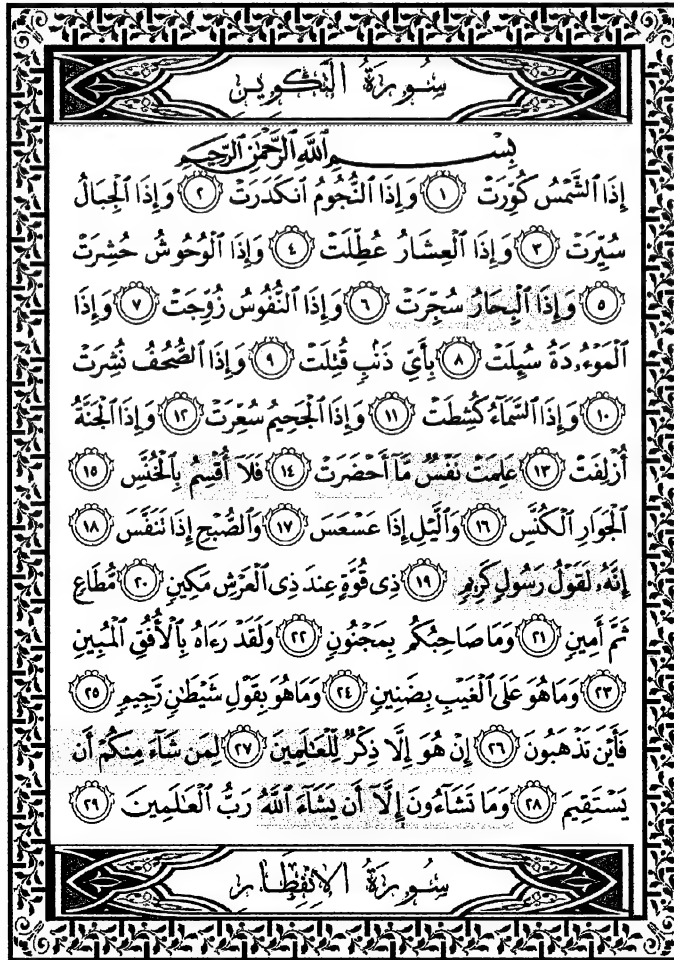 سُورَةُ التَّكْوِيرِ
بِسْمِ اللَّهِ الرَّحْمَٰنِ الرَّحِيمِ
إِذَا الشَّمْسُ كُوِّرَتْ ١ وَإِذَا النُّجُومُ انكَدَرَتْ ٢ وَإِذَا الْجِبَالُ
سُيِّرَتْ ٣ وَإِذَا الْعِشَارُ عُطِّلَتْ ٤ وَإِذَا الْوُحُوشُ حُشِرَتْ
٥ وَإِذَا الْبِحَارُ سُجِّرَتْ ٦ وَإِذَا النُّفُوسُ زُوِّجَتْ ٧ وَإِذَا
الْمَوْءُۥدَةُ سُئِلَتْ ٨ بِأَيِّ ذَنۢبٍ قُتِلَتْ ٩ وَإِذَا الصُّحُفُ نُشِرَتْ
١٠ وَإِذَا السَّمَآءُ كُشِطَتْ ١١ وَإِذَا الْجَحِيمُ سُعِّرَتْ ١٢ وَإِذَا الْجَنَّةُ
أُزْلِفَتْ ١٣ عَلِمَتْ نَفْسٌ مَّآ أَحْضَرَتْ ١٤ فَلَآ أُقْسِمُ بِالْخُنَّسِ ١٥
الْجَوَارِ الْكُنَّسِ ١٦ وَالَّيْلِ إِذَا عَسْعَسَ ١٧ وَالصُّبْحِ إِذَا تَنَفَّسَ ١٨
إِنَّهُۥ لَقَوْلُ رَسُولٍ كَرِيمٍ ١٩ ذِى قُوَّةٍ عِندَ ذِى الْعَرْشِ مَكِينٍ ٢٠ مُّطَاعٍ
ثَمَّ أَمِينٍ ٢١ وَمَا صَاحِبُكُم بِمَجْنُونٍ ٢٢ وَلَقَدْ رَءَاهُ بِالْأُفُقِ الْمُبِينِ
٢٣ وَمَا هُوَ عَلَى الْغَيْبِ بِضَنِينٍ ٢٤ وَمَا هُوَ بِقَوْلِ شَيْطَٰنٍ رَّجِيمٍ ٢٥
فَأَيْنَ تَذْهَبُونَ ٢٦ إِنْ هُوَ إِلَّا ذِكْرٌ لِّلْعَٰلَمِينَ ٢٧ لِمَن شَآءَ مِنكُمْ أَن
يَسْتَقِيمَ ٢٨ وَمَا تَشَآءُونَ إِلَّآ أَن يَشَآءَ اللَّهُ رَبُّ الْعَٰلَمِينَ ٢٩
سُورَةُ الِانفِطَارِ